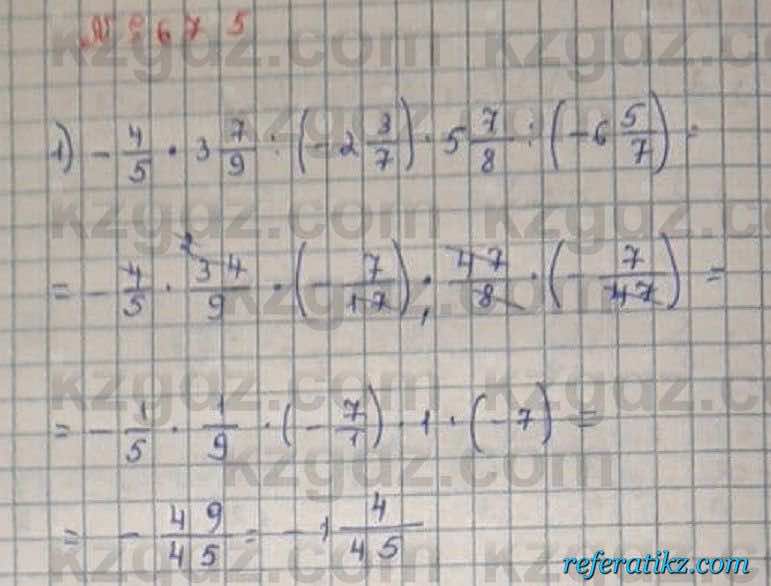 № 675
1) - 4/5 · 3 7/9 : (-2 3/7) · 5 7/8 : (-6 5/7) =
= - 4/5 · 34/9 · (- 7/17) · 47/8 · (- 7/47) =
= - 1/5 · 1/9 · (- 7/1) · 1 · (-7) =
= - 49/45 = -1 4/45
referatikz.com